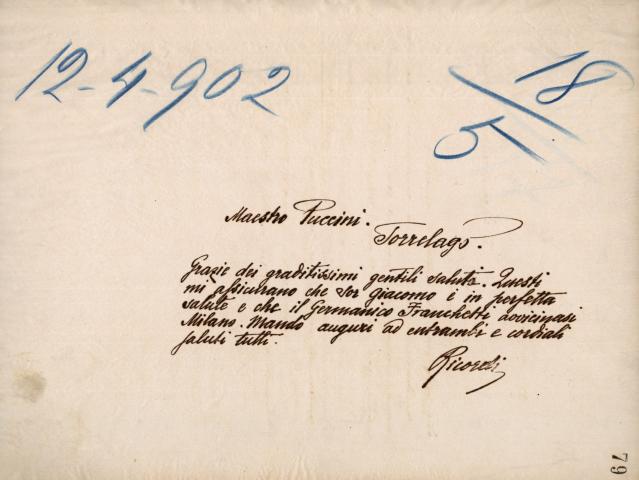 12-4-902
18/5
Maestro Puccini.
Torrelago.
Grazie dei graditissimi gentili saluti. Questi
mi assicurano che Sor Giacomo è in perfetta
salute e che il Germanico Franchetti avvicinasi
Milano. Mando auguri ad entrambi e cordiali
saluti tutti.
Ricordi
79